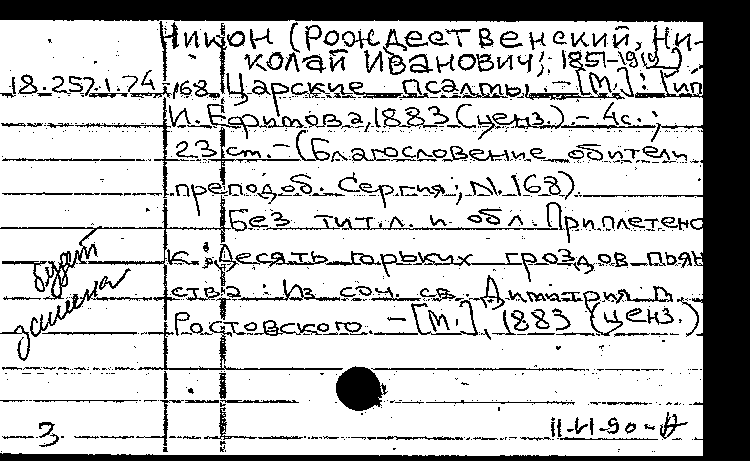 Никон (Рождественский, Ни-
колай Иванович; 1851-1919)
18.257.1.74/168 Царские псалмы. - [М.]: Тип
И. Ефимова, 1883 (ценз.). - 4с.;
23 см. - (Благословение обители
преподоб. Сергия; N. 168).
Без тит.л. и обл. Приплетено
к: Десять горьких гроздов пьян
ства: Из соч. св. Димитрия м.
Ростовского. - [М.], 1883 (ценз.)
будет
замена
3
11-VI-90